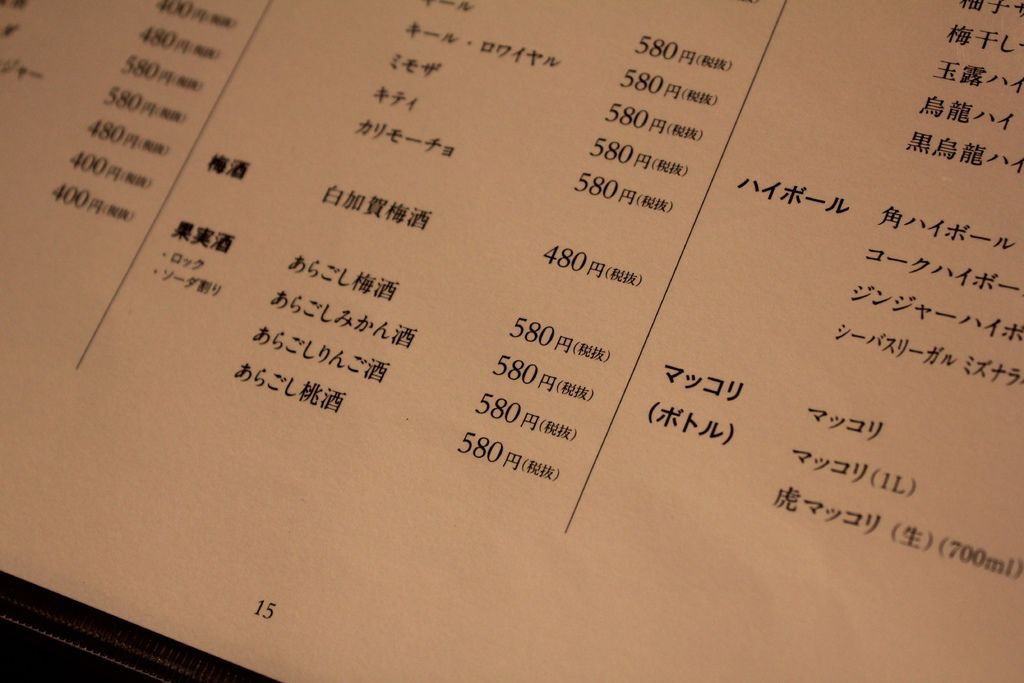 400円(税抜)
480円(税抜)
580円(税抜)
580円(税抜)
480円(税抜)
400円(税抜)
400円(税抜)
キール
キール・ロワイヤル 580円(税抜)
ミモザ 580円(税抜)
キティ 580円(税抜)
カリモーチョ 580円(税抜)
580円(税抜)
梅酒
白加賀梅酒 480円(税抜)
果実酒
・ロック
・ソーダ割り
あらごし梅酒 580円(税抜)
あらごしみかん酒 580円(税抜)
あらごしりんご酒 580円(税抜)
あらごし桃酒 580円(税抜)
柚子
梅干し
玉露ハイ
烏龍ハイ
黒烏龍ハイ
ハイボール
角ハイボール
コークハイボー
ジンジャーハイボ
シーバスリーガル ミズナラ
マッコリ
(ボトル)
マッコリ
マッコリ(1L)
虎マッコリ (生)(700ml)
15